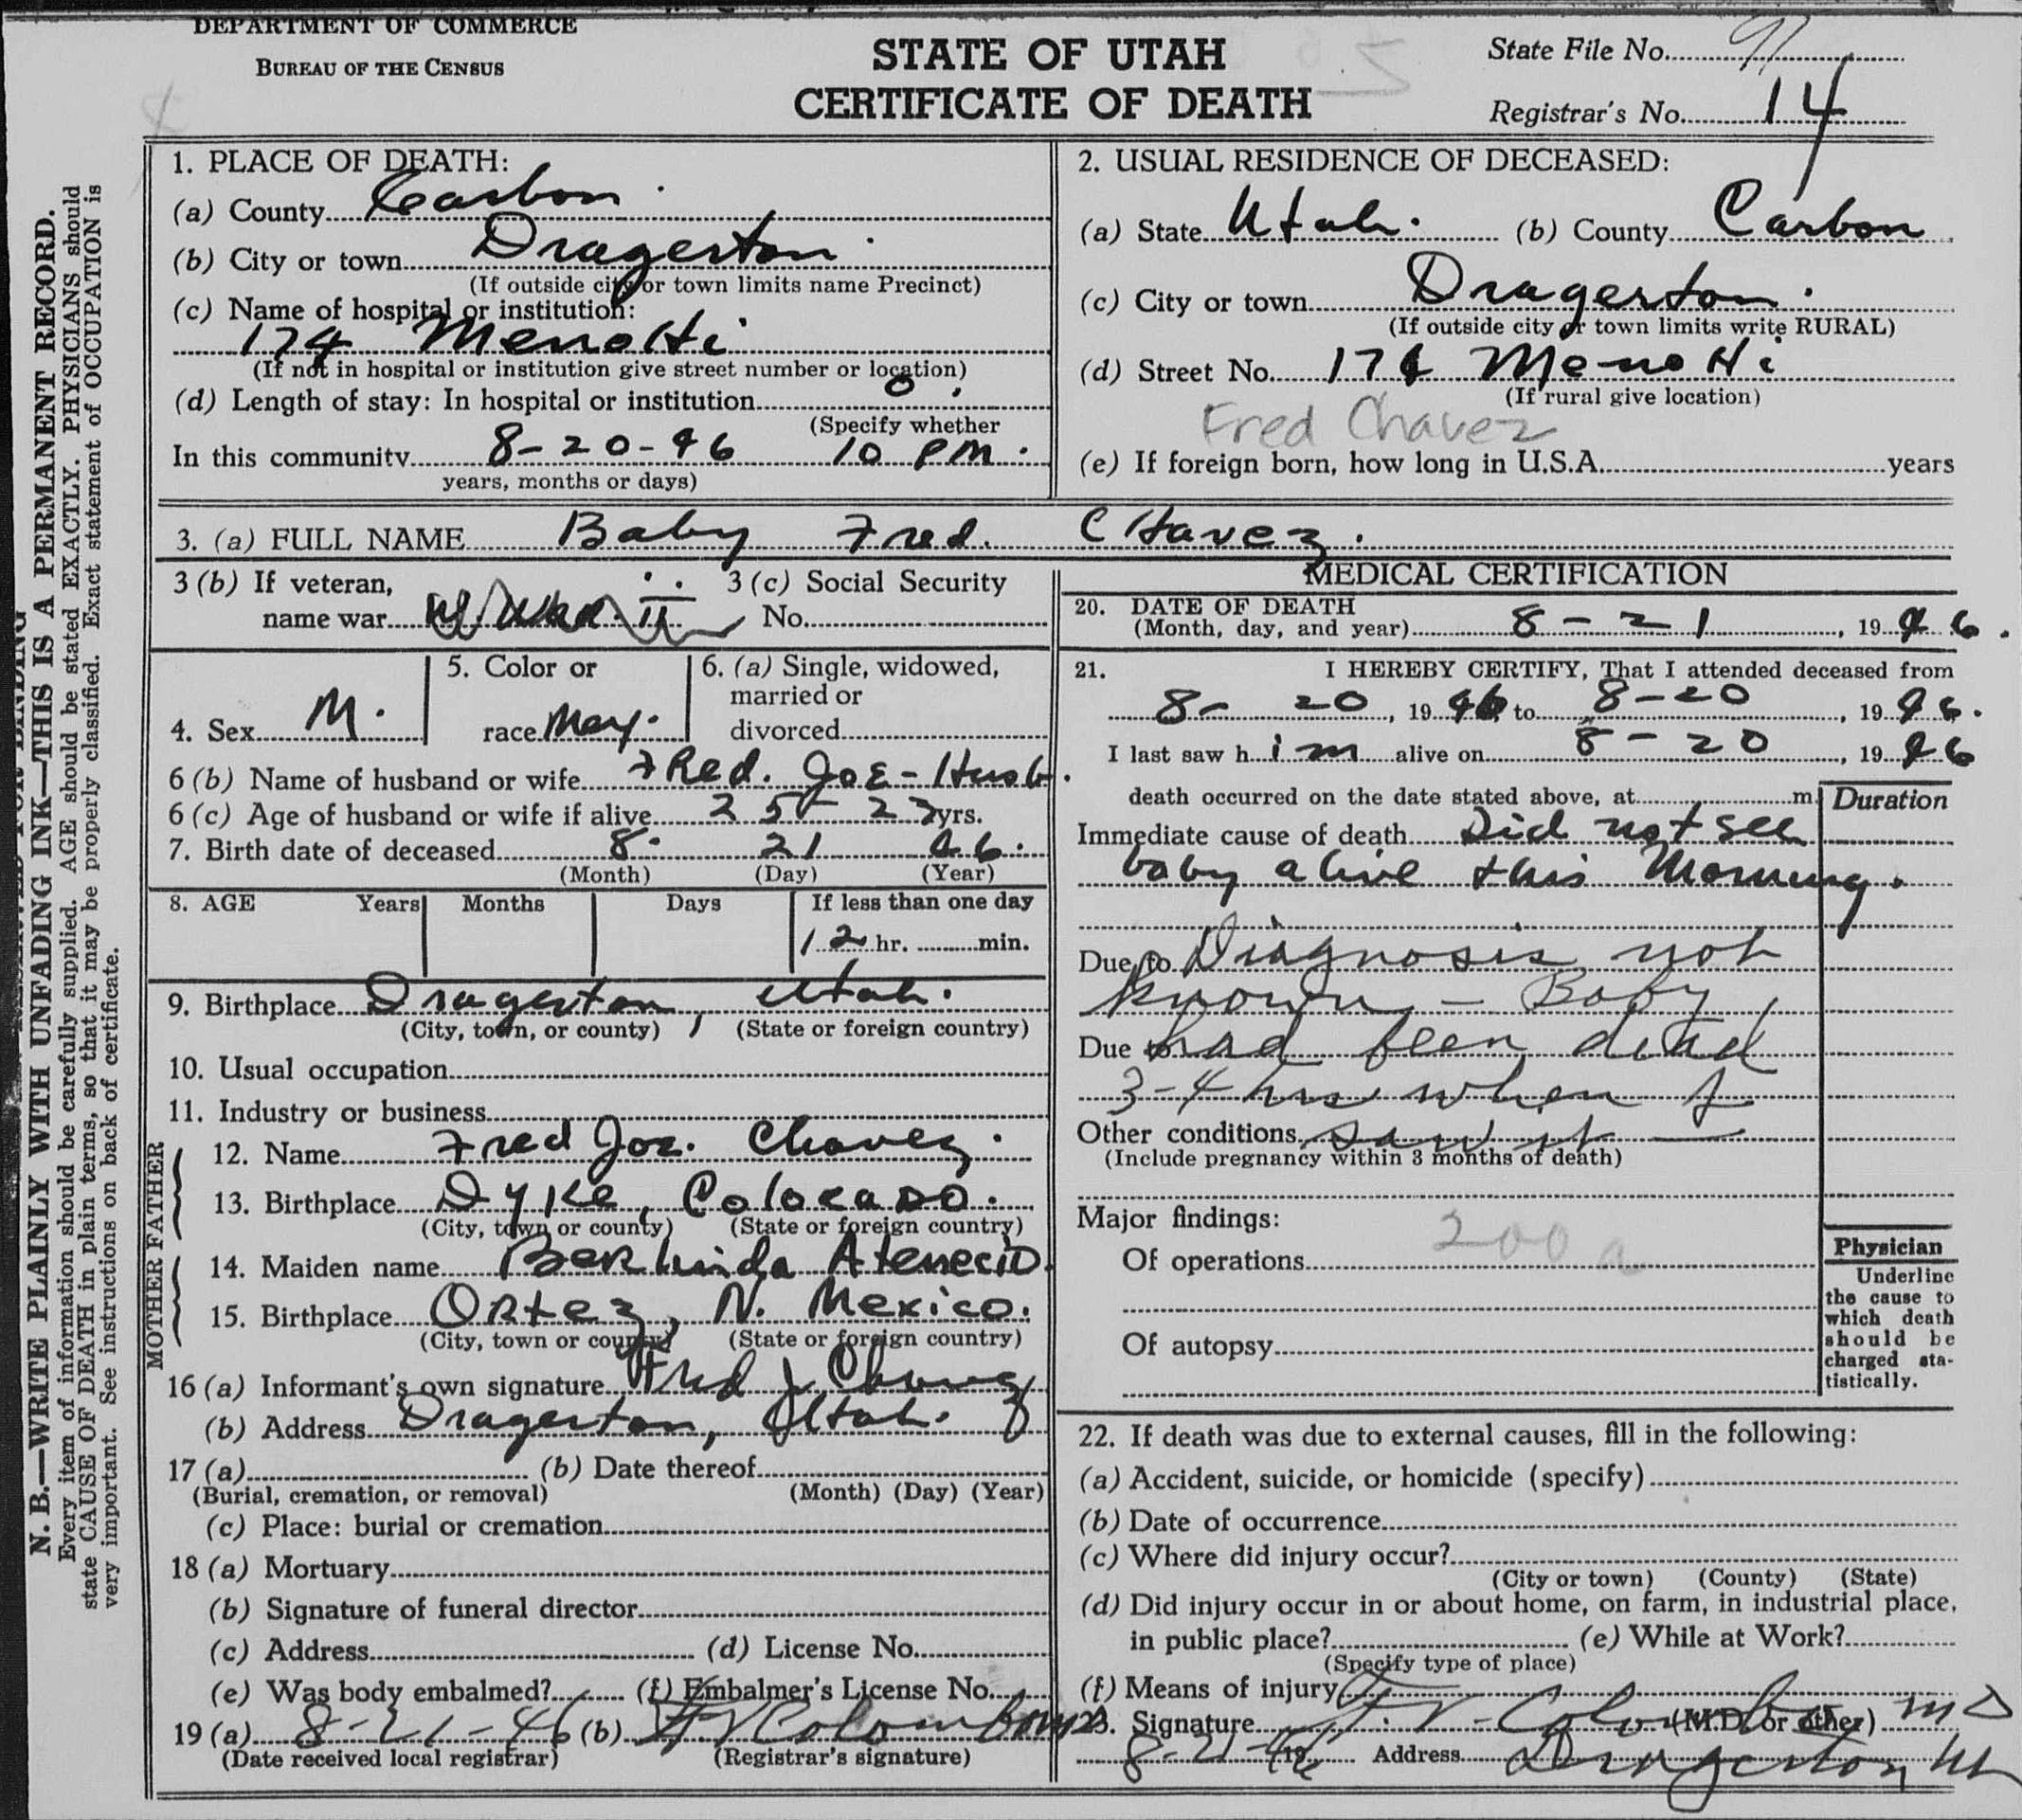 DEPARTMENT OF COMMERCE
BUREAU OF THE CENSUS
STATE OF UTAH
CERTIFICATE OF DEATH
State File No. 91
Registrar's No. 14
N. B.—WRITE PLAINLY WITH UNFADING INK—THIS IS A PERMANENT RECORD.
Every item of information should be carefully supplied. AGE should be stated EXACTLY. PHYSICIANS should
state CAUSE OF DEATH in plain terms, so that it may be properly classified. Exact statement of OCCUPATION is
very important. See instructions on back of certificate.
1. PLACE OF DEATH:
(a) County Carbon
(b) City or town Dragerton
(If outside city or town limits name Precinct)
(c) Name of hospital or institution:
174 Menotti
(If not in hospital or institution give street number or location)
(d) Length of stay: In hospital or institution 0
(Specify whether
In this community 8-20-46 10 PM.
years, months or days)
2. USUAL RESIDENCE OF DECEASED:
(a) State Utah. (b) County Carbon
(c) City or town Dragerton.
(If outside city or town limits write RURAL)
(d) Street No. 174 Menotti
(If rural give location)
Fred Chavez
(e) If foreign born, how long in U.S.A. years
3. (a) FULL NAME Baby Fred. CHavez.
3 (b) If veteran,
name war W War II
3 (c) Social Security
No.
4. Sex M.
5. Color or
race Mex.
6. (a) Single, widowed,
married or
divorced
6 (b) Name of husband or wife FRed. JOE - Husb.
6 (c) Age of husband or wife if alive 25 - 23 yrs.
7. Birth date of deceased 8. 21 46.
(Month) (Day) (Year)
8. AGE Years Months Days If less than one day
12 hr. min.
9. Birthplace Dragerton, Utah.
(City, town, or county) (State or foreign country)
10. Usual occupation
11. Industry or business
FATHER
12. Name Fred Joe. Chavez.
13. Birthplace Dyke, Colorado.
(City, town or county) (State or foreign country)
MOTHER
14. Maiden name Berlinda Atenecio
15. Birthplace Ortez, N. Mexico.
(City, town or county) (State or foreign country)
16 (a) Informant's own signature Fred J Chavez
(b) Address Dragerton, Utah.
17 (a) (b) Date thereof
(Burial, cremation, or removal) (Month) (Day) (Year)
(c) Place: burial or cremation
18 (a) Mortuary
(b) Signature of funeral director
(c) Address (d) License No.
(e) Was body embalmed? (f) Embalmer's License No.
19 (a) 8-21-46 (b) F V Colombo MD
(Date received local registrar) (Registrar's signature)
MEDICAL CERTIFICATION
20. DATE OF DEATH
(Month, day, and year) 8-21, 1946.
21. I HEREBY CERTIFY, That I attended deceased from
8- 20, 1946 to 8-20, 1946.
I last saw him alive on 8-20, 1946
death occurred on the date stated above, at m.
Duration
Immediate cause of death Did not see
baby alive this Morning.
Due to Diagnosis not
known - Baby
Due to had been dead
3-4 hrs when I
Other conditions saw it
(Include pregnancy within 3 months of death)
Major findings:
Of operations 200 a
Of autopsy
Physician
Underline
the cause to
which death
should be
charged sta-
tistically.
22. If death was due to external causes, fill in the following:
(a) Accident, suicide, or homicide (specify)
(b) Date of occurrence
(c) Where did injury occur?
(City or town) (County) (State)
(d) Did injury occur in or about home, on farm, in industrial place,
in public place? (e) While at Work?
(Specify type of place)
(f) Means of injury
23. Signature F V. Colombo (M.D. or other) MD
8-21-46 Address Dragerton, Ut